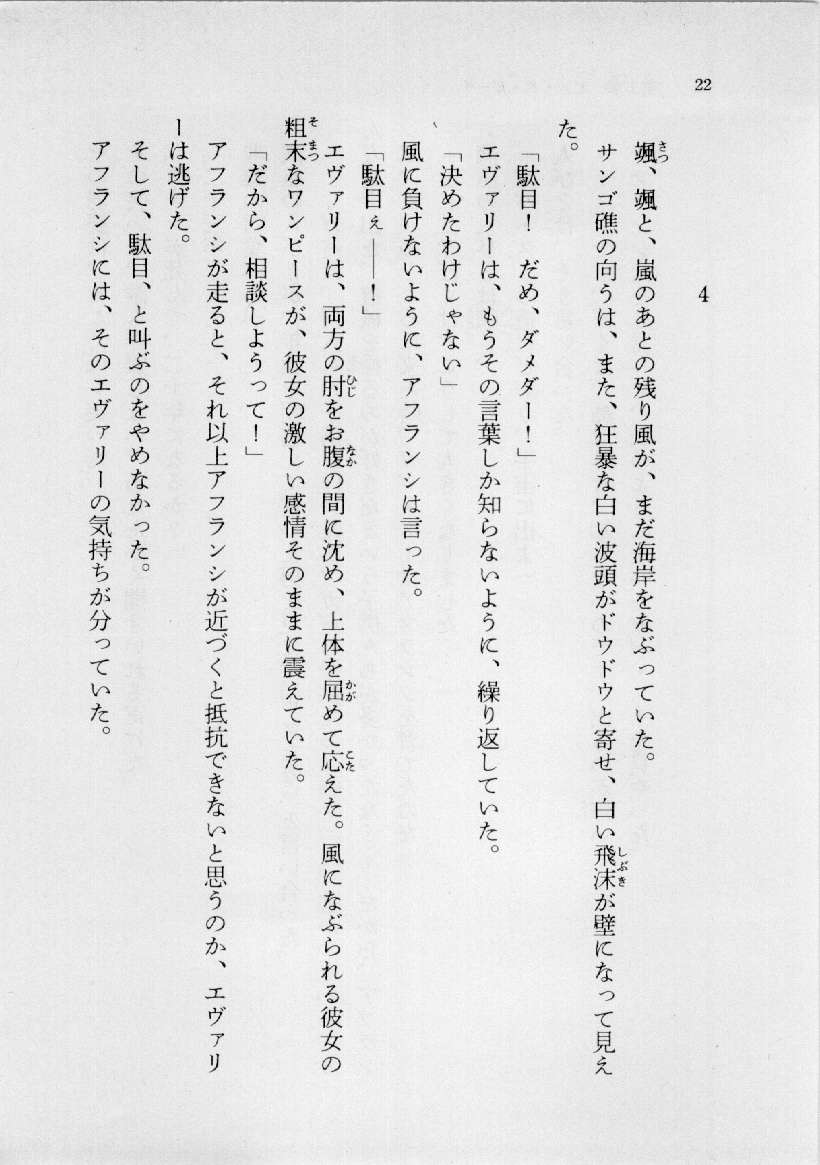 22
4
颯、颯と、嵐のあとの残り風が、まだ海岸をなぶっていた。
サンゴ礁の向うは、また、狂暴な白い波頭がドウドウと寄せ、白い飛沫が壁になって見え
た。
「駄目！　だめ、ダメダー！」
エヴァリーは、もうその言葉しか知らないように、繰り返していた。
「決めたわけじゃない」
風に負けないように、アフランシは言った。
「駄目ぇ――！」
エヴァリーは、両方の肘をお腹の間に沈め、上体を屈めて応えた。風になぶられる彼女の
粗末なワンピースが、彼女の激しい感情そのままに震えていた。
「だから、相談しようって！」
アフランシが走ると、それ以上アフランシが近づくと抵抗できないと思うのか、エヴァリ
ーは逃げた。
そして、駄目、と叫ぶのをやめなかった。
アフランシには、そのエヴァリーの気持ちが分っていた。